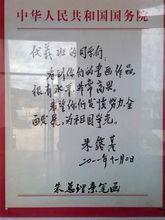 中华人民共和国国务院
伏羲班的同学们：
看到你们的书画作品，
很有水平，非常高兴。
希望你们发愤努力，全
面发展，为祖国争光。
朱镕基
二〇一一年十一月二日
朱总理亲笔函